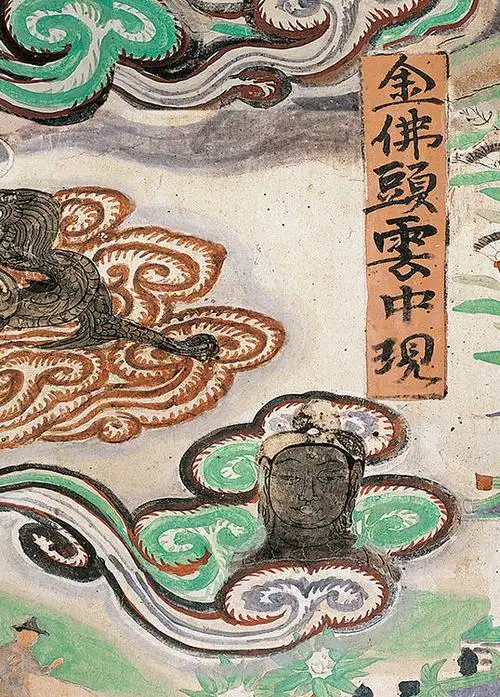 金佛頭雲中現